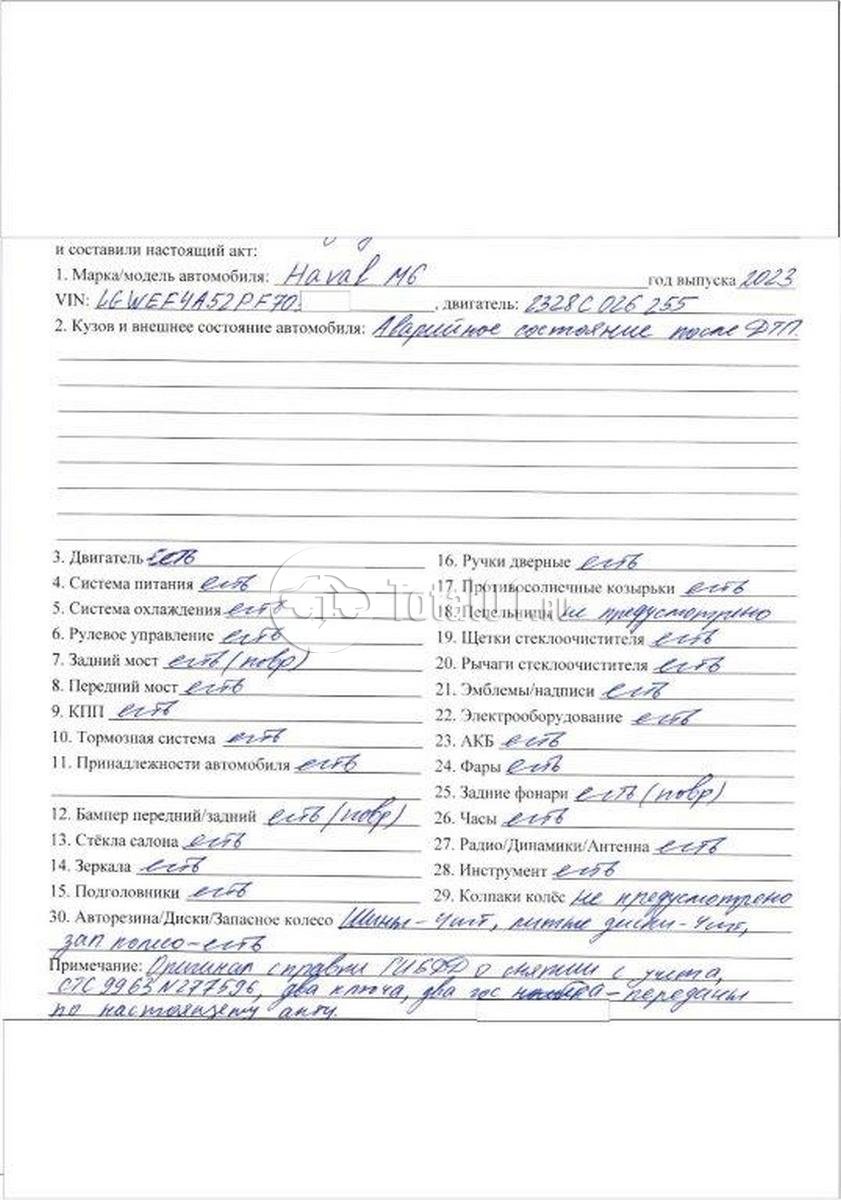 и составили настоящий акт:
1. Марка/модель автомобиля: Haval M6 год выпуска 2023
VIN: LGWEE4A52PF70 , двигатель: 2328C026255
2. Кузов и внешнее состояние автомобиля: Аварийное состояние после ДТП.
3. Двигатель есть
4. Система питания есть
5. Система охлаждения есть
6. Рулевое управление есть
7. Задний мост есть (повр)
8. Передний мост есть
9. КПП есть
10. Тормозная система есть
11. Принадлежности автомобиля есть
12. Бампер передний/задний есть (повр)
13. Стёкла салона есть
14. Зеркала есть
15. Подголовники есть
16. Ручки дверные есть
17. Противосолнечные козырьки есть
18. Пепельницы не предусмотрено
19. Щетки стеклоочистителя есть
20. Рычаги стеклоочистителя есть
21. Эмблемы/надписи есть
22. Электрооборудование есть
23. АКБ есть
24. Фары есть
25. Задние фонари есть (повр)
26. Часы есть
27. Радио/Динамики/Антенна есть
28. Инструмент есть
29. Колпаки колёс не предусмотрено
30. Авторезина/Диски/Запасное колесо Шины - 4шт, литые диски - 4шт,
зап колесо - есть
Примечание: Оригинал справки ГИБДД о снятии с учета,
СТС 9963 N277596, два ключа, два гос номера - переданы
по настоящему акту.
Total01.ru